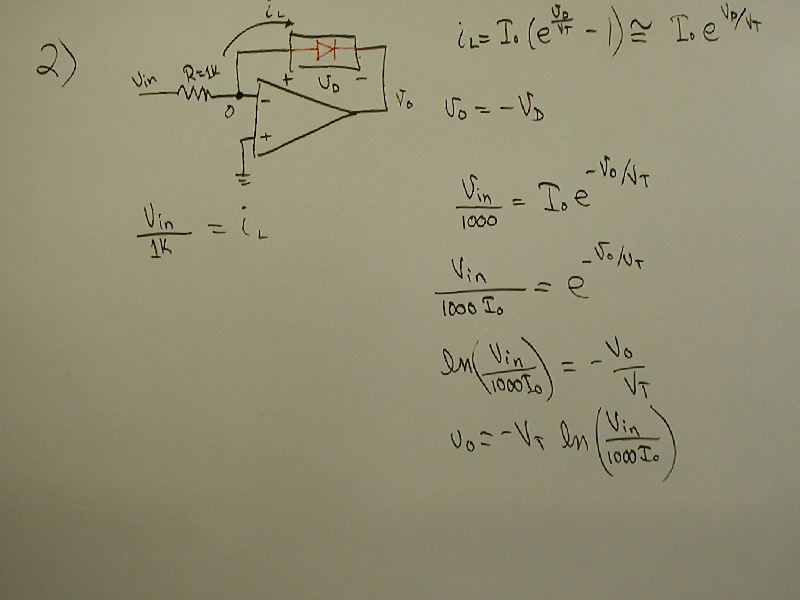 2)
iL
Vin R=1K + VD - Vo
0 -
+
Vin/1K = iL
iL = Io (e^(VD/VT) - 1) ≅ Io e^(VD/VT)
Vo = -VD
Vin/1000 = Io e^(-Vo/VT)
Vin/(1000 Io) = e^(-Vo/VT)
ln(Vin/(1000Io)) = -Vo/VT
vo = -VT ln(Vin/(1000Io))